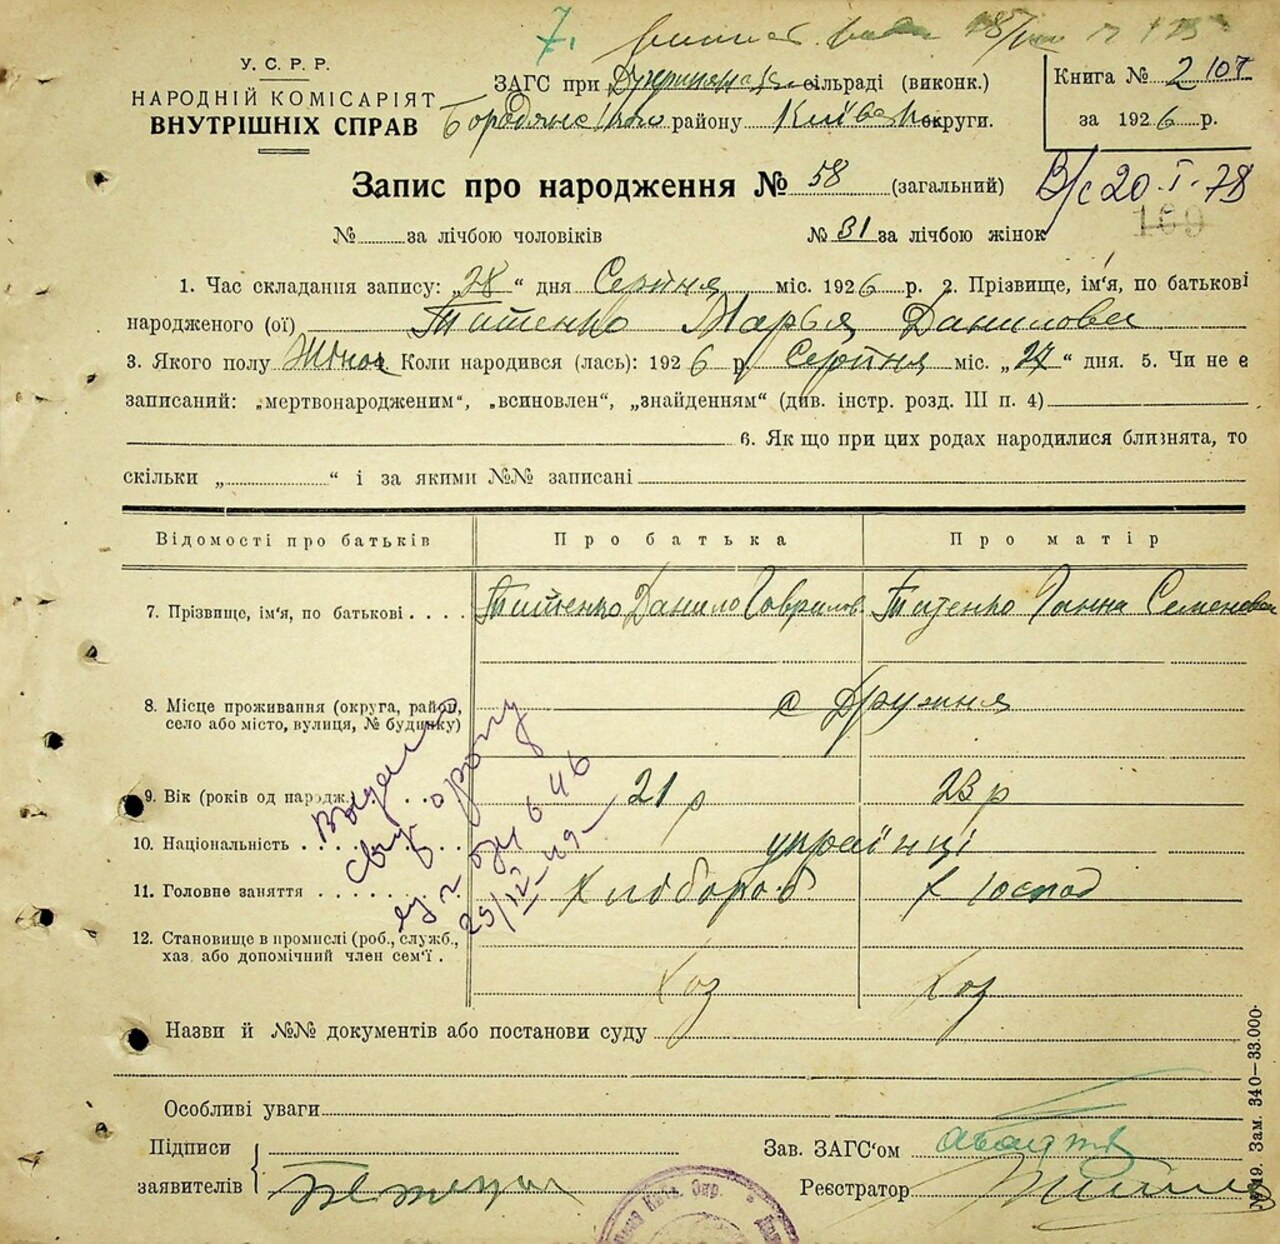 7.
У. С. Р. Р.
НАРОДНІЙ КОМІСАРІЯТ
ВНУТРІШНІХ СПРАВ
ЗАГС при сільраді (виконк.)
Бородянського району Київської округи.
Книга № 2 107
за 1926 р.
Запис про народження № 58 (загальний)
В/с 20.I.78
169
№ за лічбою чоловіків № 31 за лічбою жінок
1. Час складання запису: „28“ дня Серпня міс. 1926 р. 2. Прізвище, ім'я, по батькові
народженого (ої) Титенко Марья Данилова
3. Якого полу Жіноч. Коли народився (лась): 1926 р. Серпня міс. „27“ дня. 5. Чи не є
записаний: „мертвонародженим“, „всиновлен“, „знайденням“ (див. інстр. розд. III п. 4)
6. Як що при цих родах народилися близнята, то
скільки „ “ і за якими №№ записані
Відомості про батьків Про батька Про матір
7. Прізвище, ім'я, по батькові . . . . Титенко Данило Гаврилов Титенко Ганна Семенова
8. Місце проживання (округа, район,
село або місто, вулиця, № будинку) с Дружня
9. Вік (років од народж.) . . . 21 р 23 р
10. Національність . . . українці
11. Головне заняття . . . Хлібороб Господ
12. Становище в промислі (роб., служб.,
хаз. або допомічний член сем'ї . Хоз Хоз
Выдано
свид. о рожд
25/12-49
Назви й №№ документів або постанови суду
Особливі уваги
Підписи
заявителів
Зав. ЗАГС'ом
Реєстратор
Зам. 340—33.000.